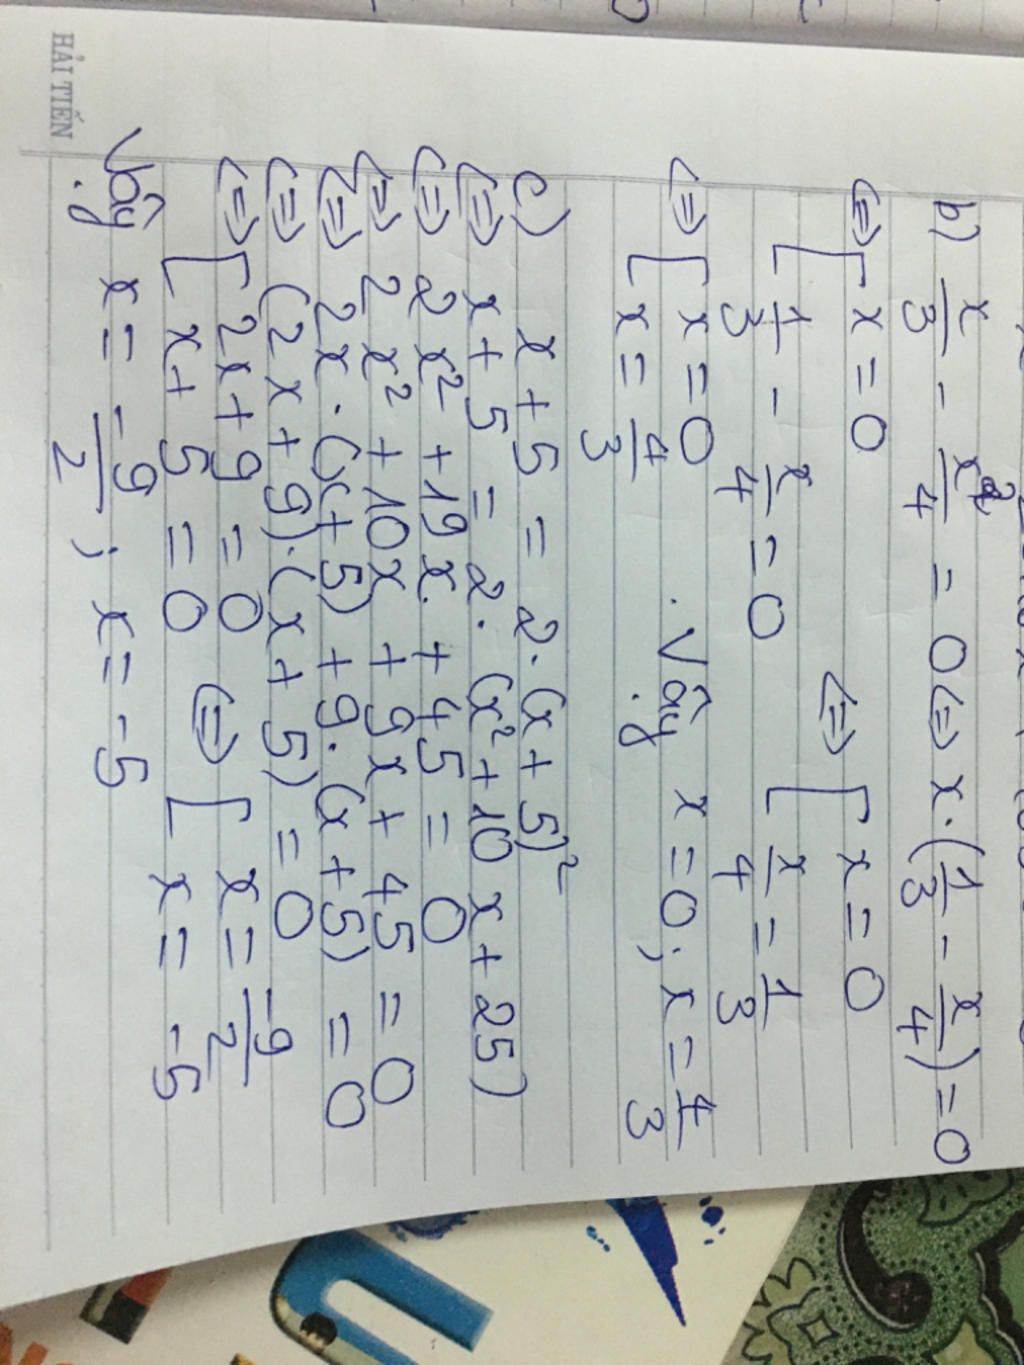 HẢI TIẾN
b) x/3 - x²/4 = 0 ⇔ x.(1/3 - x/4) = 0
⇔ [ x = 0 ⇔ [ x = 0
1/3 - x/4 = 0 x/4 = 1/3
⇔ [ x = 0 . Vậy x = 0; x = 4/3
x = 4/3
c) x + 5 = 2.(x + 5)²
⇔ x + 5 = 2.(x² + 10x + 25)
⇔ 2x² + 19x + 45 = 0
⇔ 2x² + 10x + 9x + 45 = 0
⇔ 2x.(x + 5) + 9.(x + 5) = 0
⇔ (2x + 9).(x + 5) = 0
⇔ [ 2x + 9 = 0 ⇔ [ x = -9/2
x + 5 = 0 x = -5
Vậy x = -9/2; x = -5